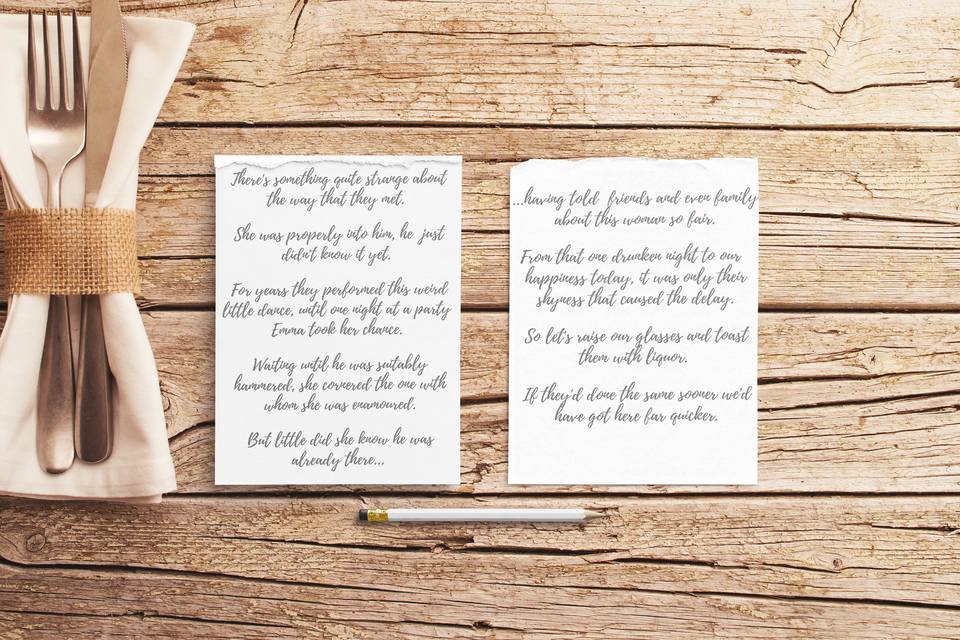 There's something quite strange about
the way that they met.
She was properly into him, he just
didn't know it yet.
For years they performed this weird
little dance, until one night at a party
Emma took her chance.
Waiting until he was suitably
hammered, she cornered the one with
whom she was enamoured.
But little did she know he was
already there...
...having told friends and even family
about this woman so fair.
From that one drunken night to our
happiness today, it was only their
shyness that caused the delay.
So let's raise our glasses and toast
them with liquor.
If they'd done the same sooner we'd
have got here far quicker.